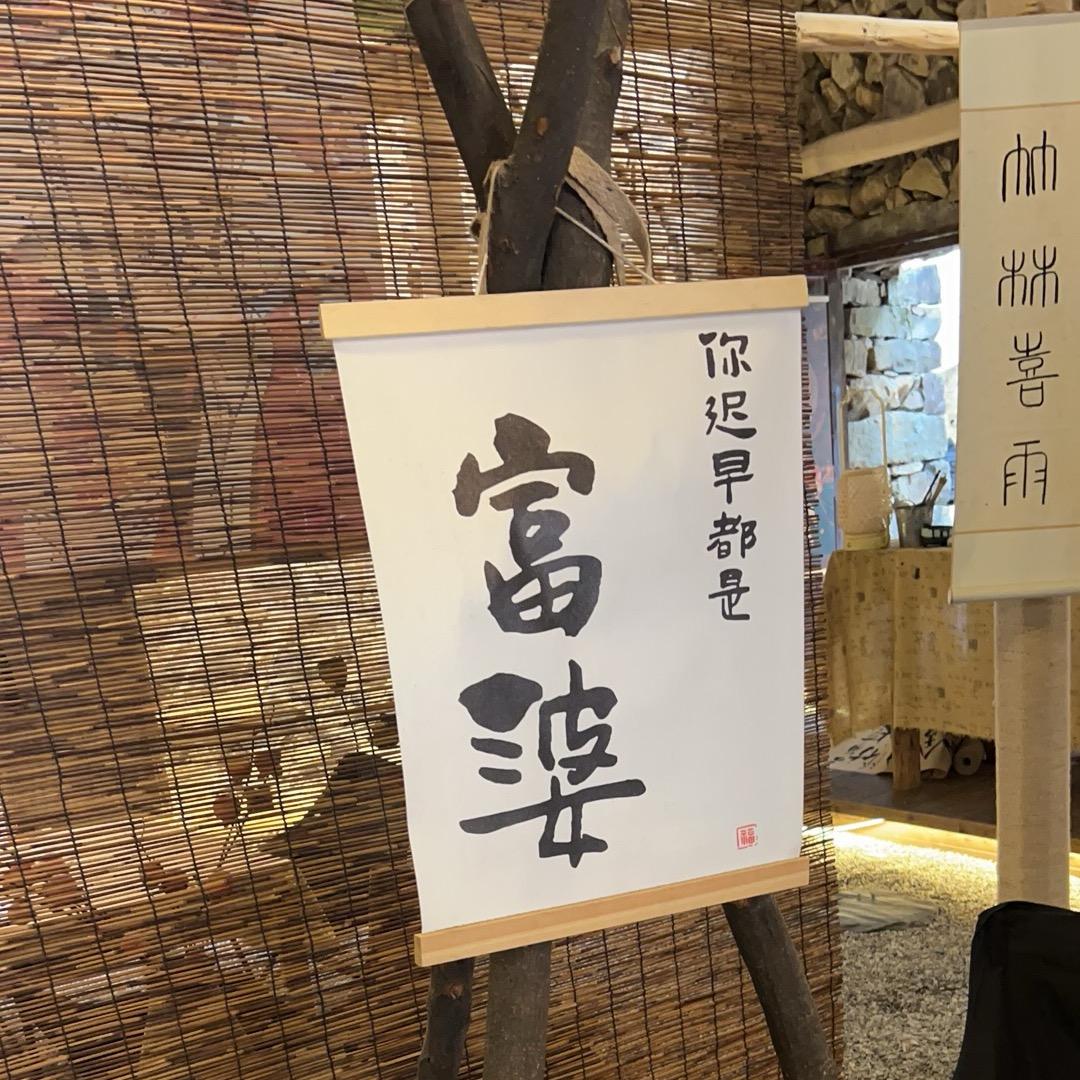 你迟早都是
富婆
福
竹林喜雨